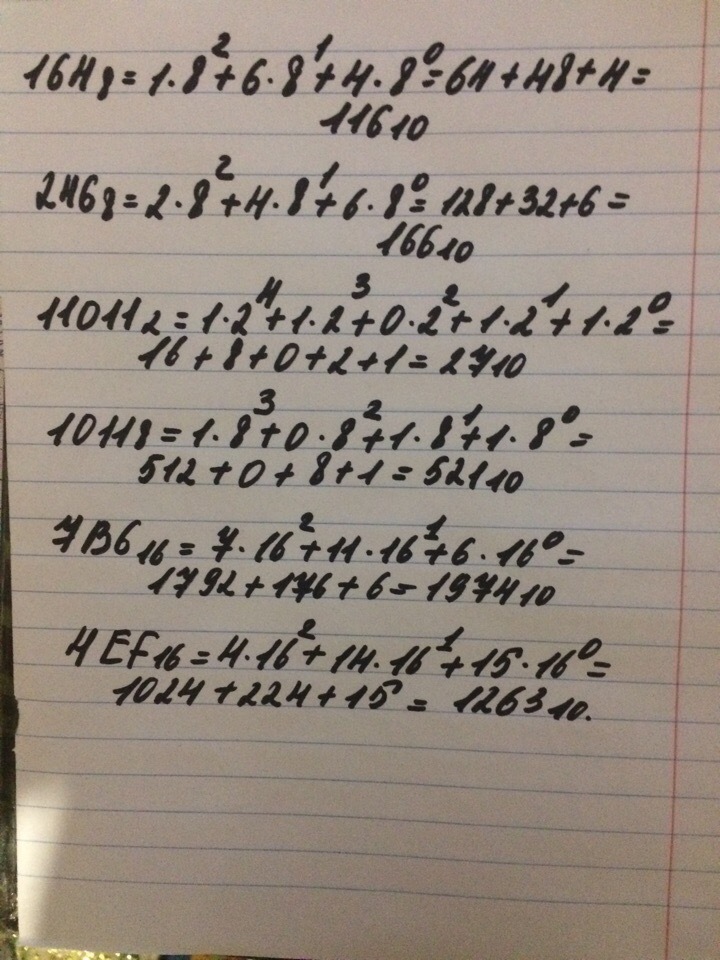 164₈ = 1·8² + 6·8¹ + 4·8⁰ = 64 + 48 + 4 =
116₁₀
246₈ = 2·8² + 4·8¹ + 6·8⁰ = 128 + 32 + 6 =
166₁₀
11011₂ = 1·2⁴ + 1·2³ + 0·2² + 1·2¹ + 1·2⁰ =
16 + 8 + 0 + 2 + 1 = 27₁₀
1011₈ = 1·8³ + 0·8² + 1·8¹ + 1·8⁰ =
512 + 0 + 8 + 1 = 521₁₀
7B6₁₆ = 7·16² + 11·16¹ + 6·16⁰ =
1792 + 176 + 6 = 1974₁₀
4EF₁₆ = 4·16² + 14·16¹ + 15·16⁰ =
1024 + 224 + 15 = 1263₁₀.